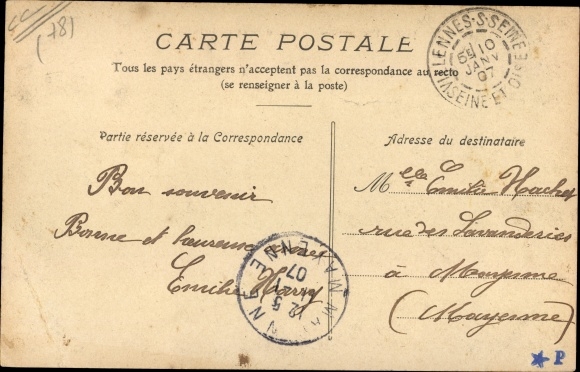 (78)
CARTE POSTALE
Tous les pays étrangers n'acceptent pas la correspondance au recto
(se renseigner à la poste)
LENNES-S-SEINE
10
JANV
07
SEINE ET OISE
Partie réservée à la Correspondance
Bon souvenir
Bonne et heureuse
Emilie Harry
Adresse du destinataire
Melle Emilie
rue des Lavanderies
à Mayenne
(Mayenne)
MAYENNE
07
★ P